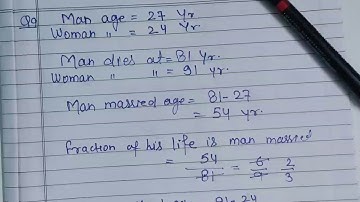 Q9 Man age = 27 Yr
Woman " = 24 Yr.
Man dies at = 81 Yr.
Woman " " = 91 yr.
Man married age = 81-27
= 54 yr.
fraction of his life is man married
= 54/81 = 6/9 2/3
91-24